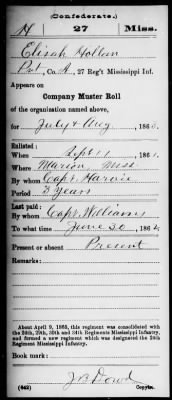 (Confederate.)
H 27 Miss.
Elisah Hollam
Pvt., Co. A, 27 Reg't Mississippi Inf.
Appears on
Company Muster Roll
of the organization named above,
for July & Aug, 1862.
Enlisted:
When Sept 11, 1861.
Where Marion, Miss
By whom Capt. Harvie
Period 3 years
Last paid:
By whom Capt. Williams
To what time June 30, 1862.
Present or absent Present
Remarks:
About April 9, 1865, this regiment was consolidated with
the 24th, 29th, 30th and 34th Regiments Mississippi Infantry,
and formed a new regiment which was designated the 24th
Regiment Mississippi Infantry.
Book mark:
(642) J B Dowd
Copyist.